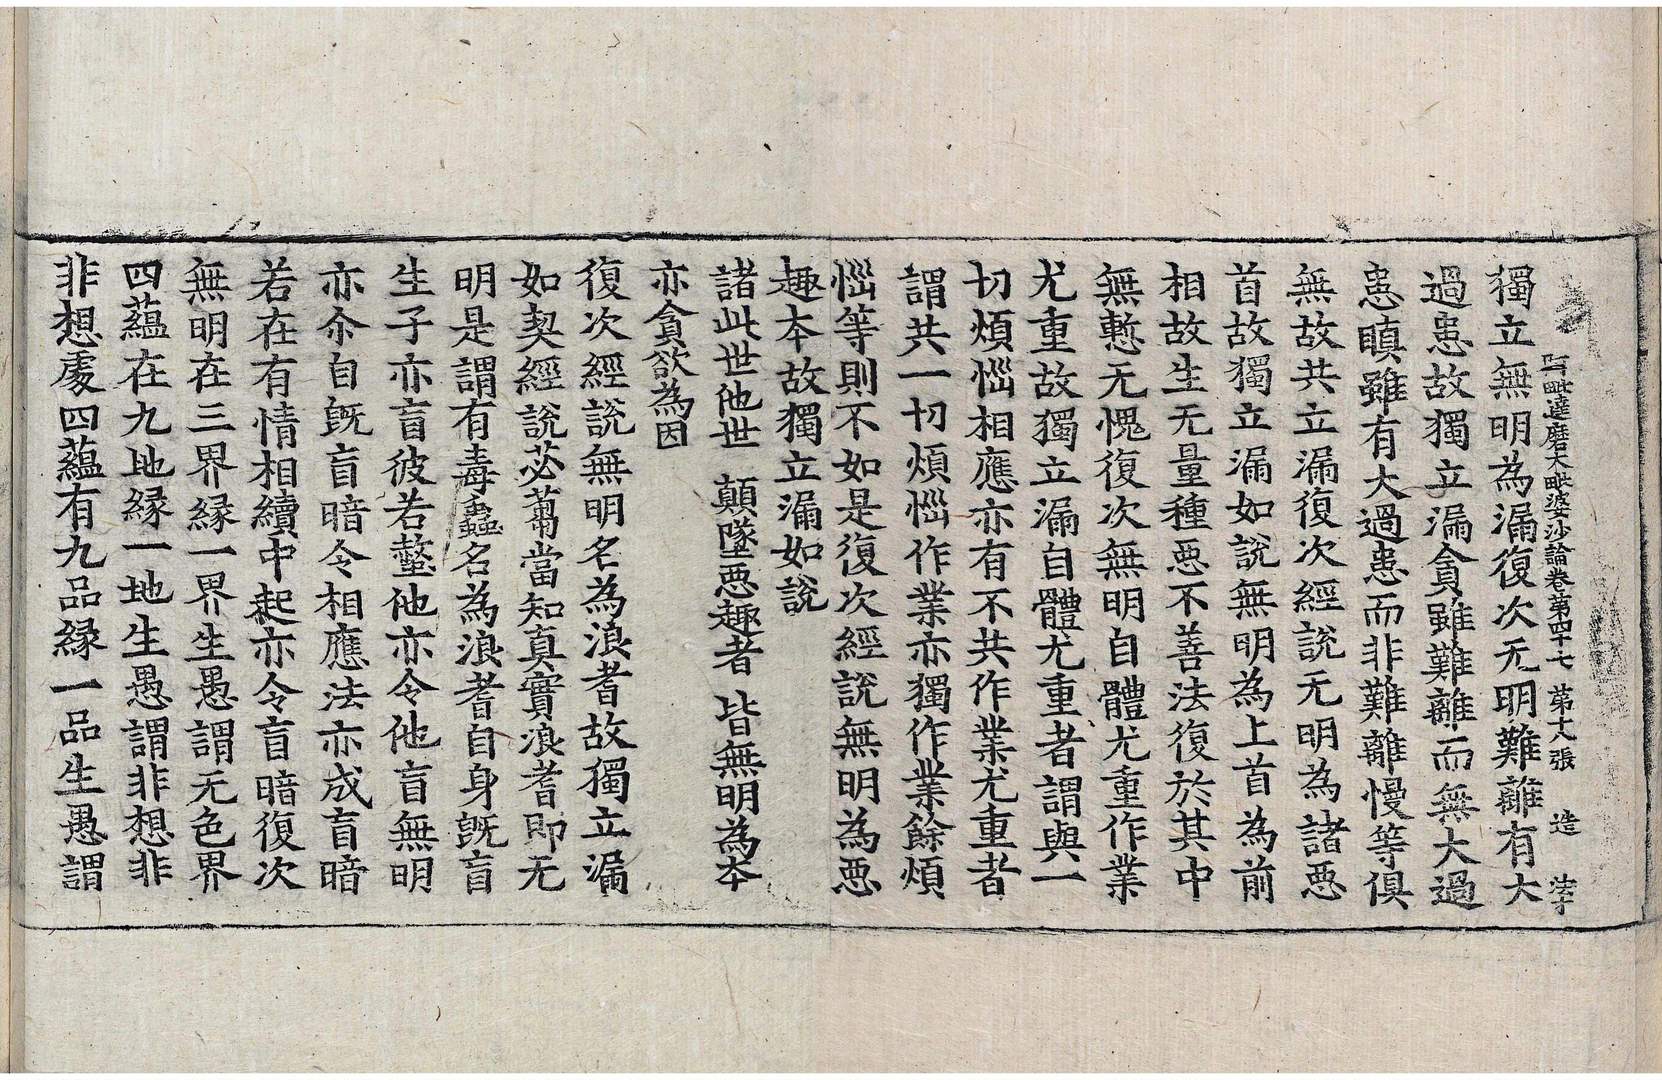 阿毗達磨大毗婆沙論卷第四十七 第十八張 造 法才
獨立無明為漏復次无明難離有大
過患故獨立漏貪雖難離而無大過
患瞋雖有大過患而非難離慢等俱
無故共立漏復次經說无明為諸惡
首故獨立漏如說無明為上首為前
相故生无量種惡不善法復於其中
無慙无愧復次無明自體尤重作業
尤重故獨立漏自體尤重者謂與一
切煩惱相應亦有不共作業尤重者
謂共一切煩惱作業亦獨作業餘煩
惱等則不如是復次經說無明為惡
趣本故獨立漏如說
諸此世他世 顛墜惡趣者 皆無明為本
亦貪欲為因
復次經說無明名為浪耆故獨立漏
如契經說苾蒭當知真實浪耆即无
明是謂有毒蟲名為浪耆自身既盲
生子亦盲彼若螫他亦令他盲無明
亦尒自既盲暗令相應法亦成盲暗
若在有情相續中起亦令盲暗復次
無明在三界緣一界生愚謂无色界
四蘊在九地緣一地生愚謂非想非
非想處四蘊有九品緣一品生愚謂